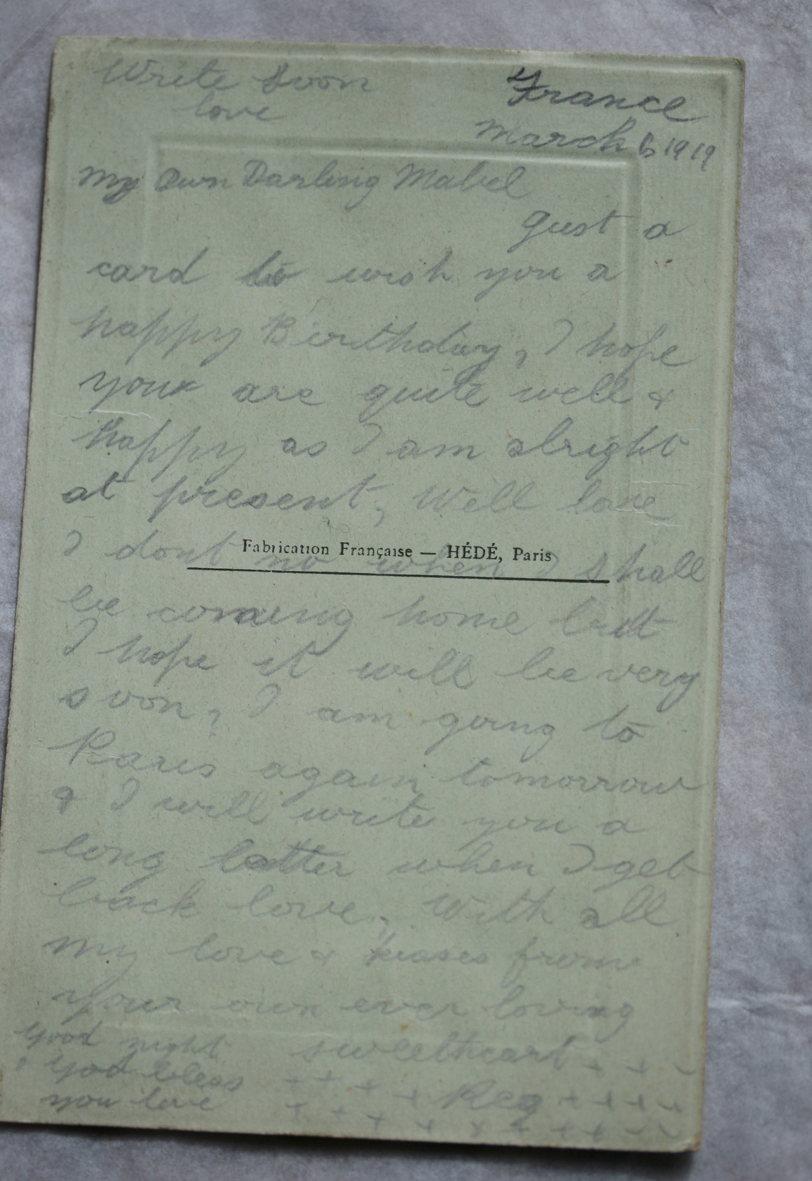 Write Soon
love
France
March 6 1919
My Own Darling Mabel
Just a
card to wish you a
happy Birthday, I hope
your are quite well &
happy as I am alright
at present, Well love
I dont no when I shall
Fabrication Française — HÉDÉ, Paris
be coming home but
I hope it will be very
soon, I am going to
Paris again tomorrow
& I will write you a
long letter when I get
back love, With all
my love & kisses from
your own ever loving
sweetheart + + +
+ + + + Reg + + + + +
+ + + + + + + + +
Good night
& God bless
you love